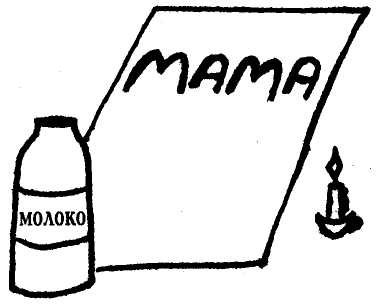 МАМА
МОЛОКО